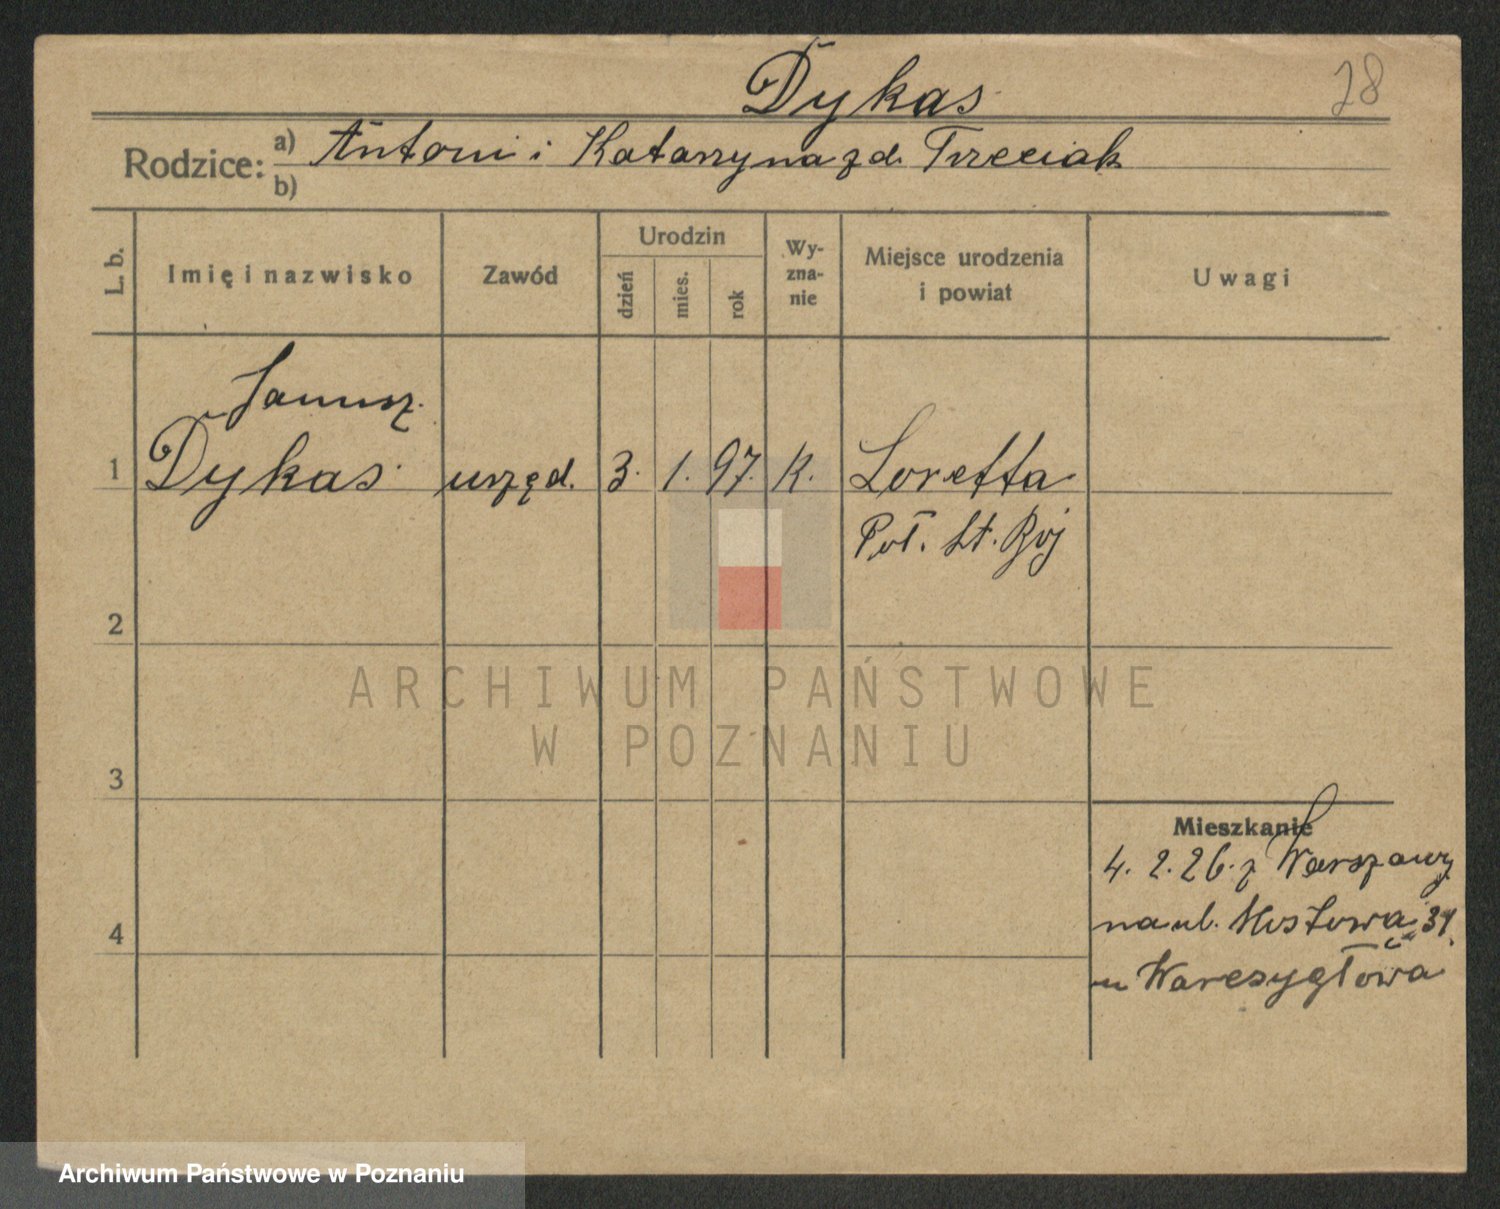 Dykas
28
Rodzice: a) Antoni i Katarzyna z d. Trzeciak
b)
L. b.
Imię i nazwisko
Zawód
Urodzin
dzień
mies.
rok
Wy-
zna-
nie
Miejsce urodzenia
i powiat
Uwagi
Janusz
1 Dykas urzęd. 3. 1. 97. K. Loretta
Poł. St.
2
3
4
ARCHIWUM PAŃSTWOWE
W POZNANIU
Mieszkanie
4. 2. 26. z Warszawy
na ul. Mostowa 34.
u
Archiwum Państwowe w Poznaniu